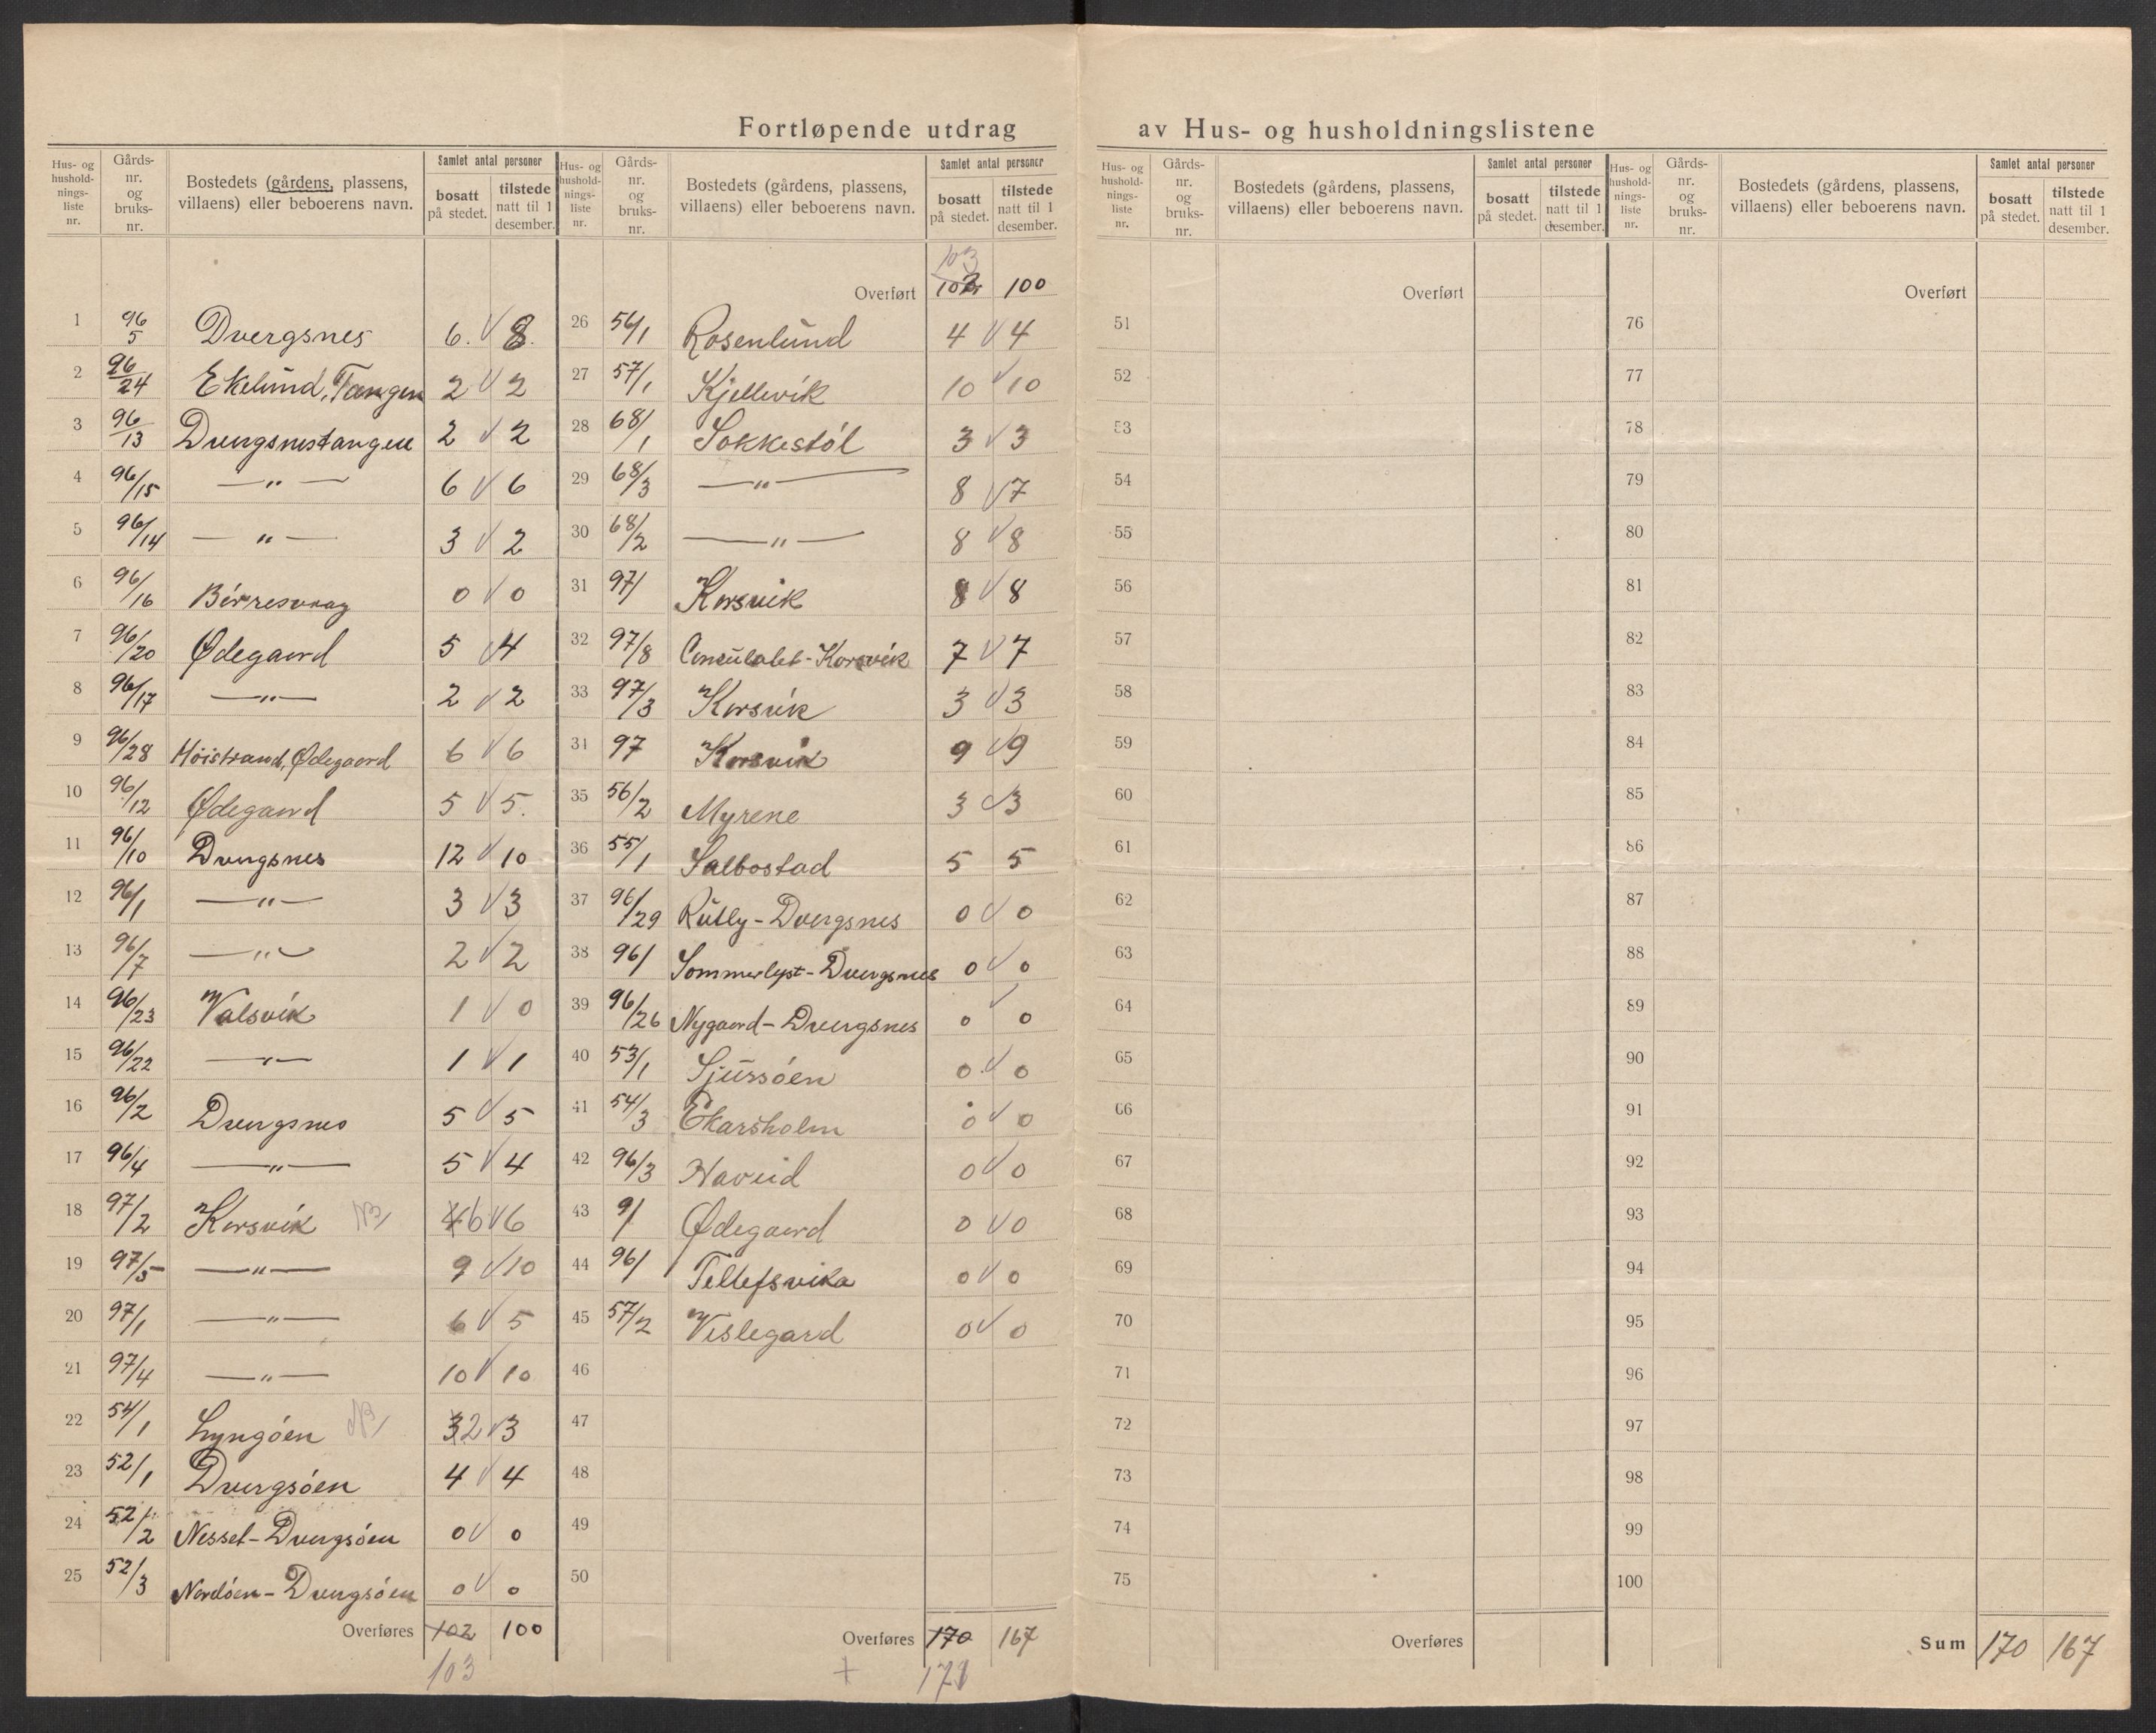 Fortløpende utdrag av Hus- og husholdningslistene
Hus- og hushold-nings-liste nr. Gårds-nr. og bruks-nr. Bostedets (gårdens, plassens, villaens) eller beboerens navn. Samlet antal personer bosatt på stedet. tilstede natt til 1 desember.
1 96/5 Dvergsnes 6. 8.
2 96/24 Ekelund, Tangen 2 2
3 96/13 Dvergsnestangen 2 2
4 96/15 —„— 6 6
5 96/14 —„— 3 2
6 96/16 Börresvaag 0 0
7 96/20 Ødegaard 5 4
8 96/17 —„— 2 2
9 96/28 Höistrand, Ødegaard 6 6
10 96/12 Ødegaard 5 5.
11 96/10 Dvergsnes 12 10
12 96/1 —„— 3 3
13 96/7 —„— 2 2
14 96/23 Valsvik 1 0
15 96/22 —„— 1 1
16 96/2 Dvergsnes 5 5
17 96/4 —„— 5 4
18 97/2 Korsvik NB 4 6 6
19 97/5 —„— 9 10
20 97/1 —„— 6 5
21 97/4 —„— 10 10
22 54/1 Lyngöen NB 3 2 3
23 52/1 Dvergsöen 4 4
24 52/2 Nesset-Dvergsöen 0 0
25 52/3 Nordöen-Dvergsöen 0 0
Overføres 102 100
103
Hus- og hushold-nings-liste nr. Gårds-nr. og bruks-nr. Bostedets (gårdens, plassens, villaens) eller beboerens navn. Samlet antal personer bosatt på stedet. tilstede natt til 1 desember.
103
Overført 102 100
26 56/1 Rosenlund 4 4
27 57/1 Kjellevik 10 10
28 68/1 Sokkestöl 3 3
29 68/3 —„— 8 7
30 68/2 —„— 8 8
31 97/ Korsvik 8 8
32 97/8 Consulatet-Korsvik 7 7
33 97/3 Korsvik 3 3
34 97 Korsvik 9 9
35 56/2 Myrene 3 3
36 55/1 Salbostad 5 5
37 96/29 Rütly-Dvergsnes 0 0
38 96/ Sommerlyst-Dvergsnes 0 0
39 96/26 Nygaard-Dvergsnes 0 0
40 53/1 Sjursöen 0 0
41 54/3 Ekarsholm 0 0
42 96/3 Haveid 0 0
43 9/ Ødegaard 0 0
44 96/ Tellefsvika 0 0
45 57/2 Vislegard 0 0
46
47
48
49
50
Overføres 170 167
+ 171
Hus- og hushold-nings-liste nr. Gårds-nr. og bruks-nr. Bostedets (gårdens, plassens, villaens) eller beboerens navn. Samlet antal personer bosatt på stedet. tilstede natt til 1 desember.
Overført
51
52
53
54
55
56
57
58
59
60
61
62
63
64
65
66
67
68
69
70
71
72
73
74
75
Overføres
Hus- og hushold-nings-liste nr. Gårds-nr. og bruks-nr. Bostedets (gårdens, plassens, villaens) eller beboerens navn. Samlet antal personer bosatt på stedet. tilstede natt til 1 desember.
Overført
76
77
78
79
80
81
82
83
84
85
86
87
88
89
90
91
92
93
94
95
96
97
98
99
100
Sum 170 167